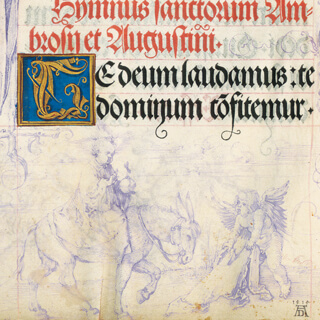 Hymnus sanctorum Am-
brosij et Augustini.
TE deum laudamus: te
dominum cōfitemur.
AD